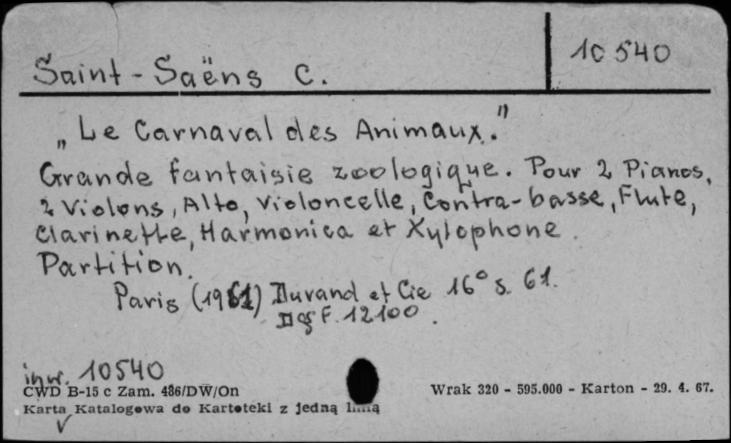 Saint-Saëns C.
10 540
„Le Carnaval des Animaux."
Grande fantaisie zoologique. Pour 2 Pianos,
2 Violons, Alto, Violoncelle, Contra-basse, Flute,
Clarinette, Harmonica et Xylophone.
Partition.
Paris (1961) Durand et Cie 16° s. 61.
D & F. 12100.
inw. 10540
CWD B-15 c Zam. 486/DW/On
Wrak 320 - 595.000 - Karton - 29. 4. 67.
Karta Katalogowa do Kartoteki z jedną linią